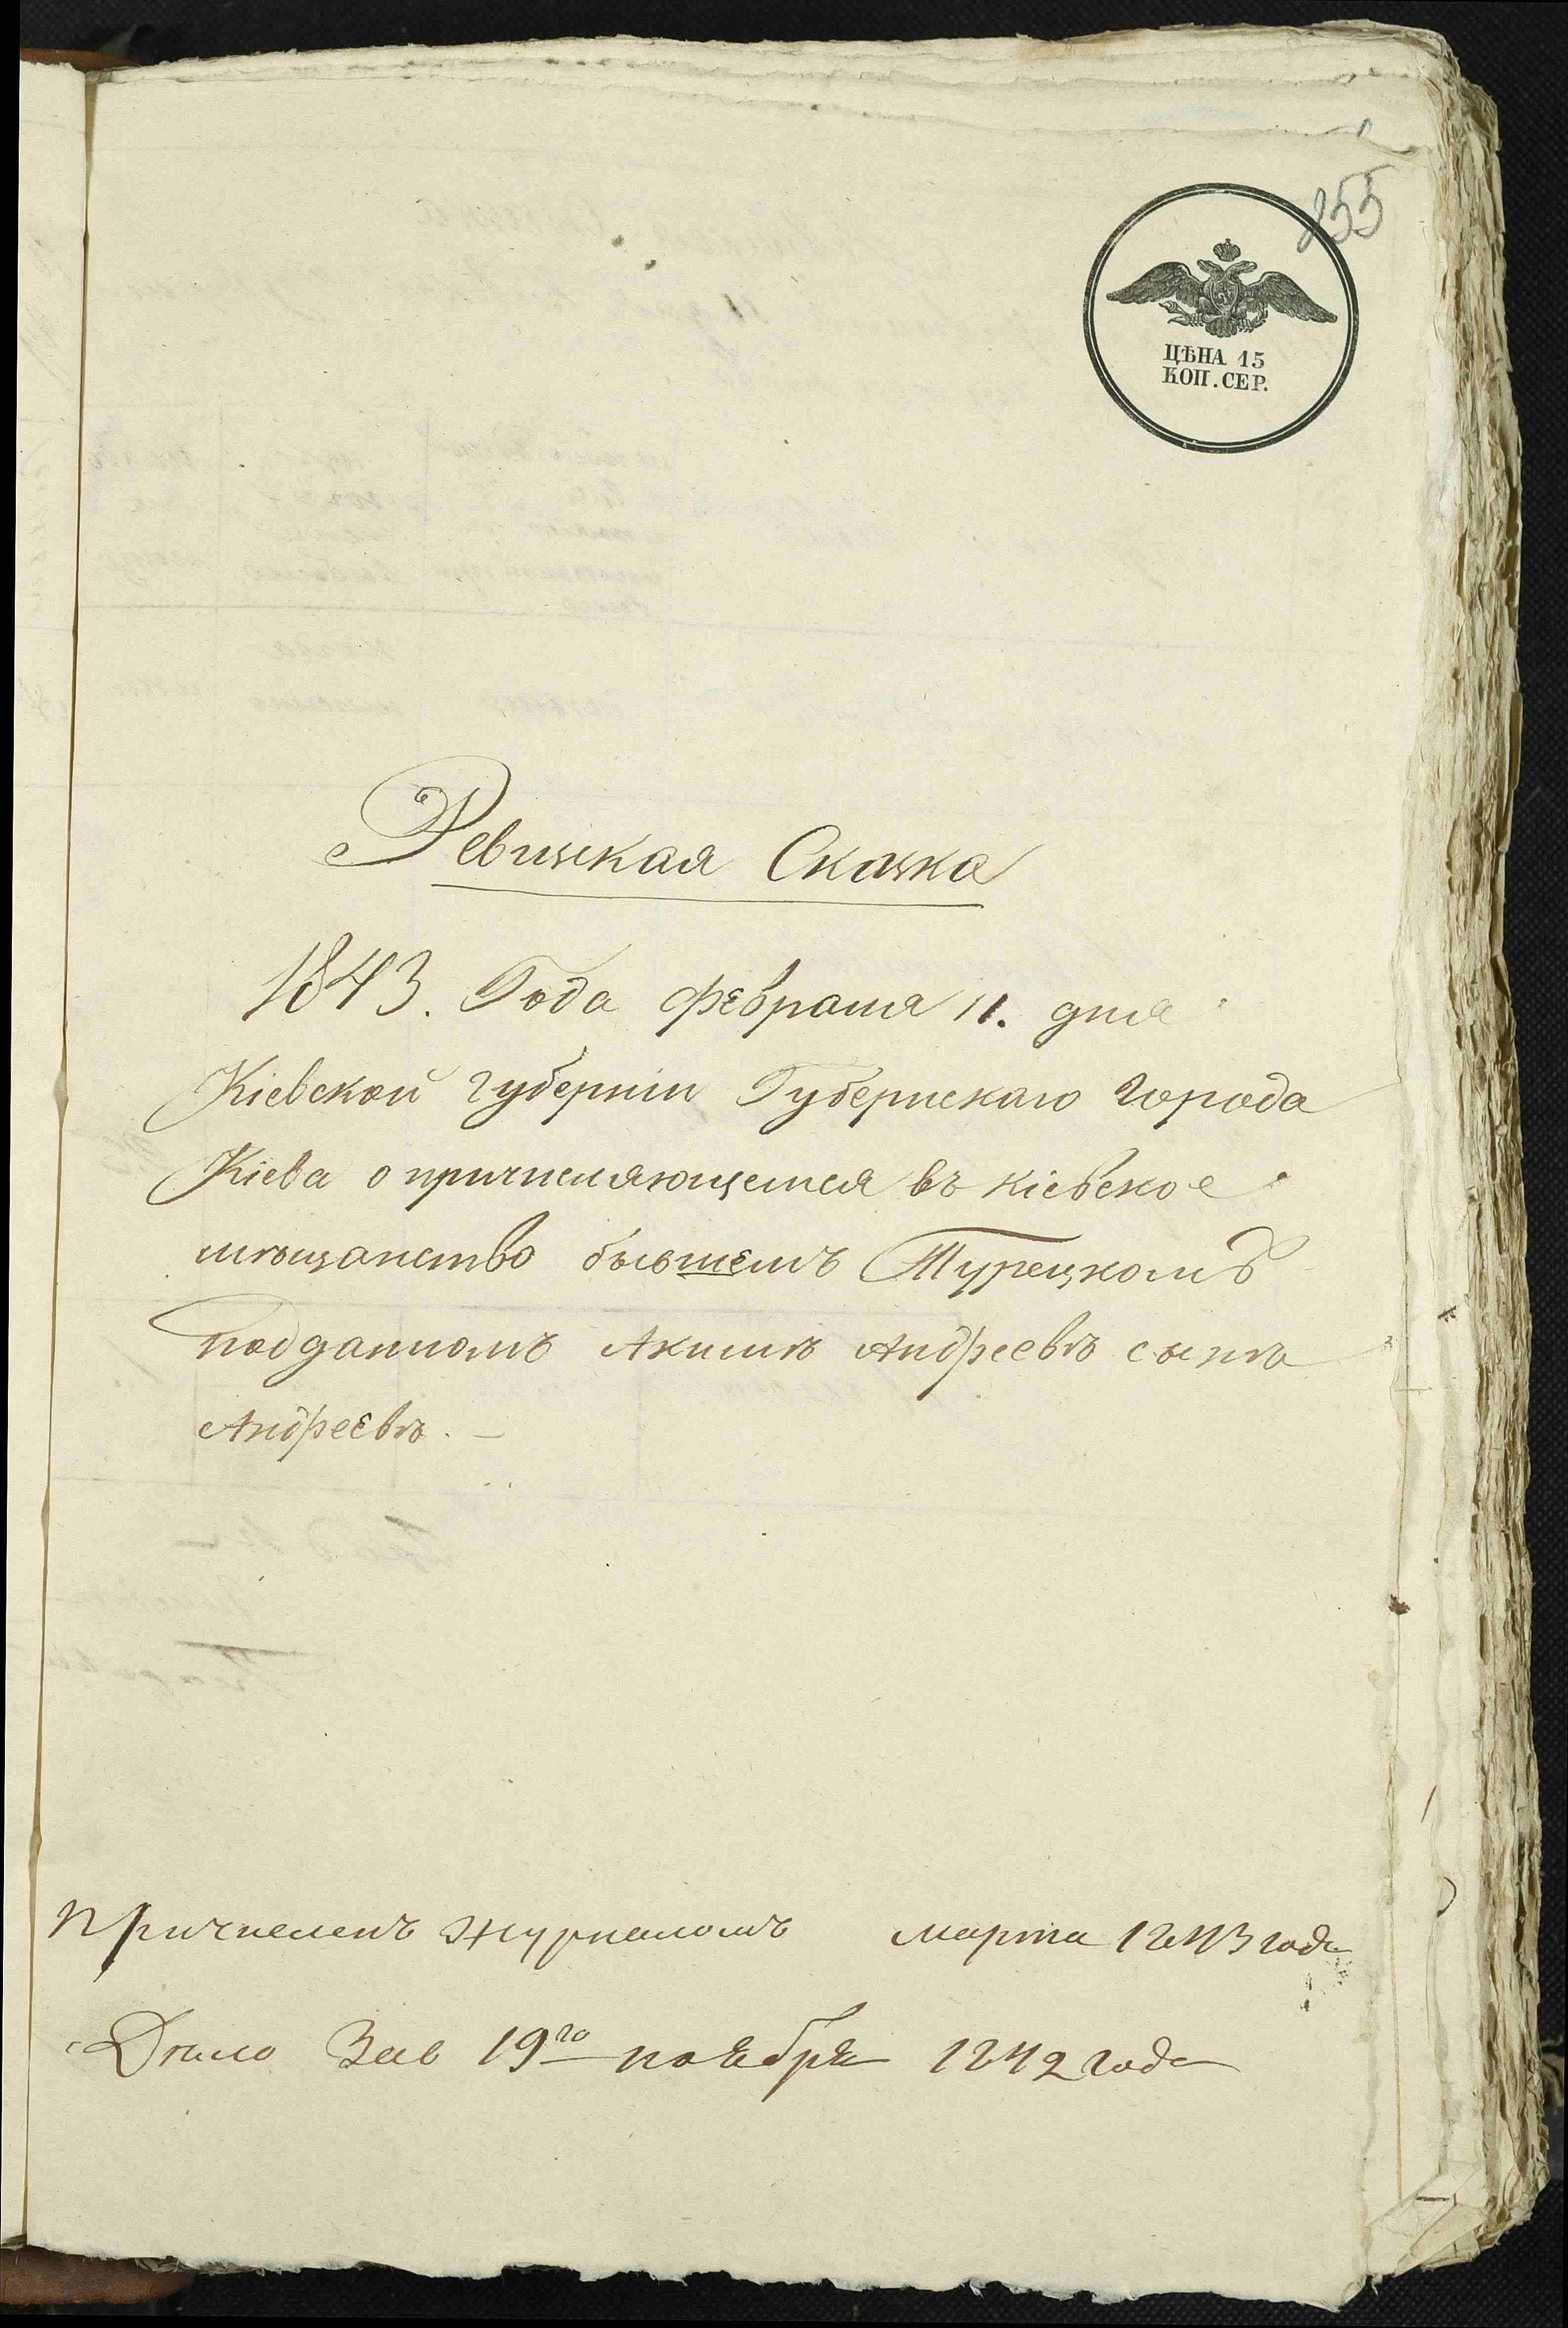 255
ЦѢНА 15
КОП. СЕР.
Ревизская Сказка
1843. Года февраля 11. дня
Кіевской губерніи Губернскаго города
Кіева о причисляющемся въ кіевское
мѣщанство бывшемъ Турецкомъ
подданномъ Акимѣ Андреевѣ сынѣ
Андреевѣ. —
Причисленъ журналомъ марта 1843 года
Дѣло 19го ноября 1842 года